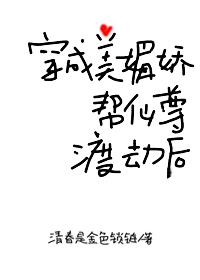 穿成美媚娇
帮仙尊
渡劫后
清春是金色锁链/著